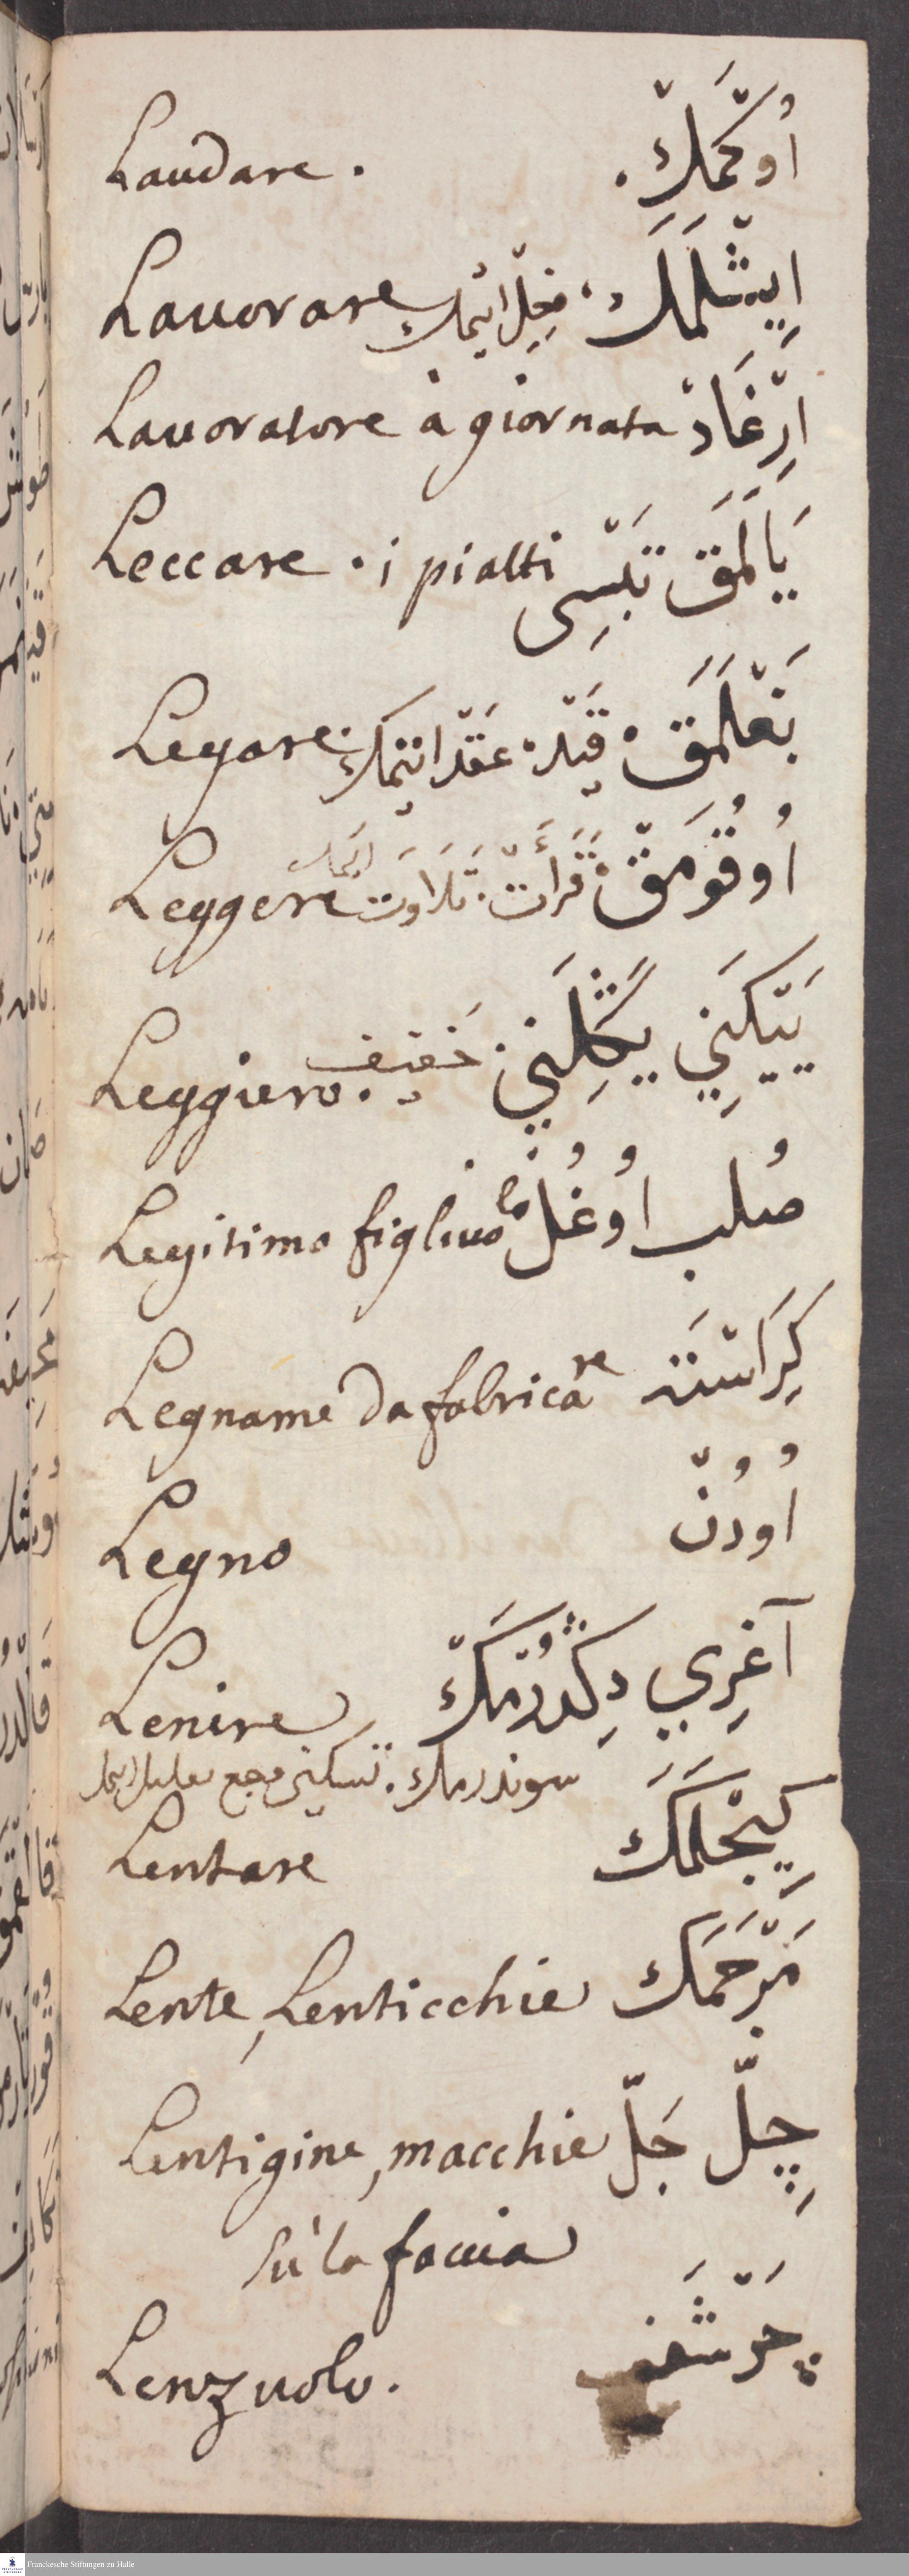 Laudare . اُوكْمَكْ .
Lauorare اِيشْلَمَكْ ، فِعِلْ ايتْمك
Lauoratore à giornata اِرْغَادْ
Leccare . i piatti يَالَمَق تَبْسِى
Legare . بَغْلَمَق ، قَيْد ، عَقْد ايتمك
Leggere اُوقُومَقْ ، قَرَأَتْ . تَلَاوَت ايتمك
Leggiero . يَيْكَنِي يَكْلِنِي . خَفيف
Legitimo figliuolo صُلب اُوغُل
Legname da fabricare كِرَاسْتَه
Legno اُودُنْ
Lenire آغِرِيي دِكْدُرْمَكْ
سوندرمك . تسكين وجع
Lentare كِيجْلَمَكْ
Lente, Lenticchie مَرْجَمَك
Lentigine, macchie چِلّ جَلّ
su' la faccia
Lenzuolo . چَرْشَف
Franckesche Stiftungen zu Halle